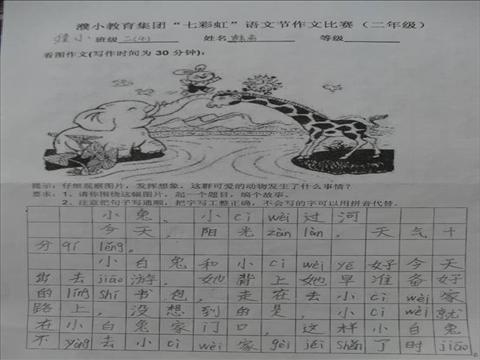 濮小教育集团“七彩虹”语文节作文比赛(二年级)
小 班级 二(4) 姓名 等级
看图作文(写作时间为30分钟):
提示:仔细观察图片,发挥想象。这群可爱的动物发生了什么事情?
要求:1、请你围绕这幅图片,起一个题目,编个故事。
2、注意把句子写通顺,把字写工整正确,不会写的字可以用拼音代替。
小兔,小cì wèi过河
今天,阳光zàn làn,天气十
分qí lǎng。
小白兔和小cì wèi yē好今天
去jiāo游,她背上她早准备好
的líng shí书包,走在去小cì wèi家
路上,没想到的是,小cì wèi就
在小白兔家门口,这样小白兔
不yòng去小cì wèi家jié jiě shěn了时jiāo